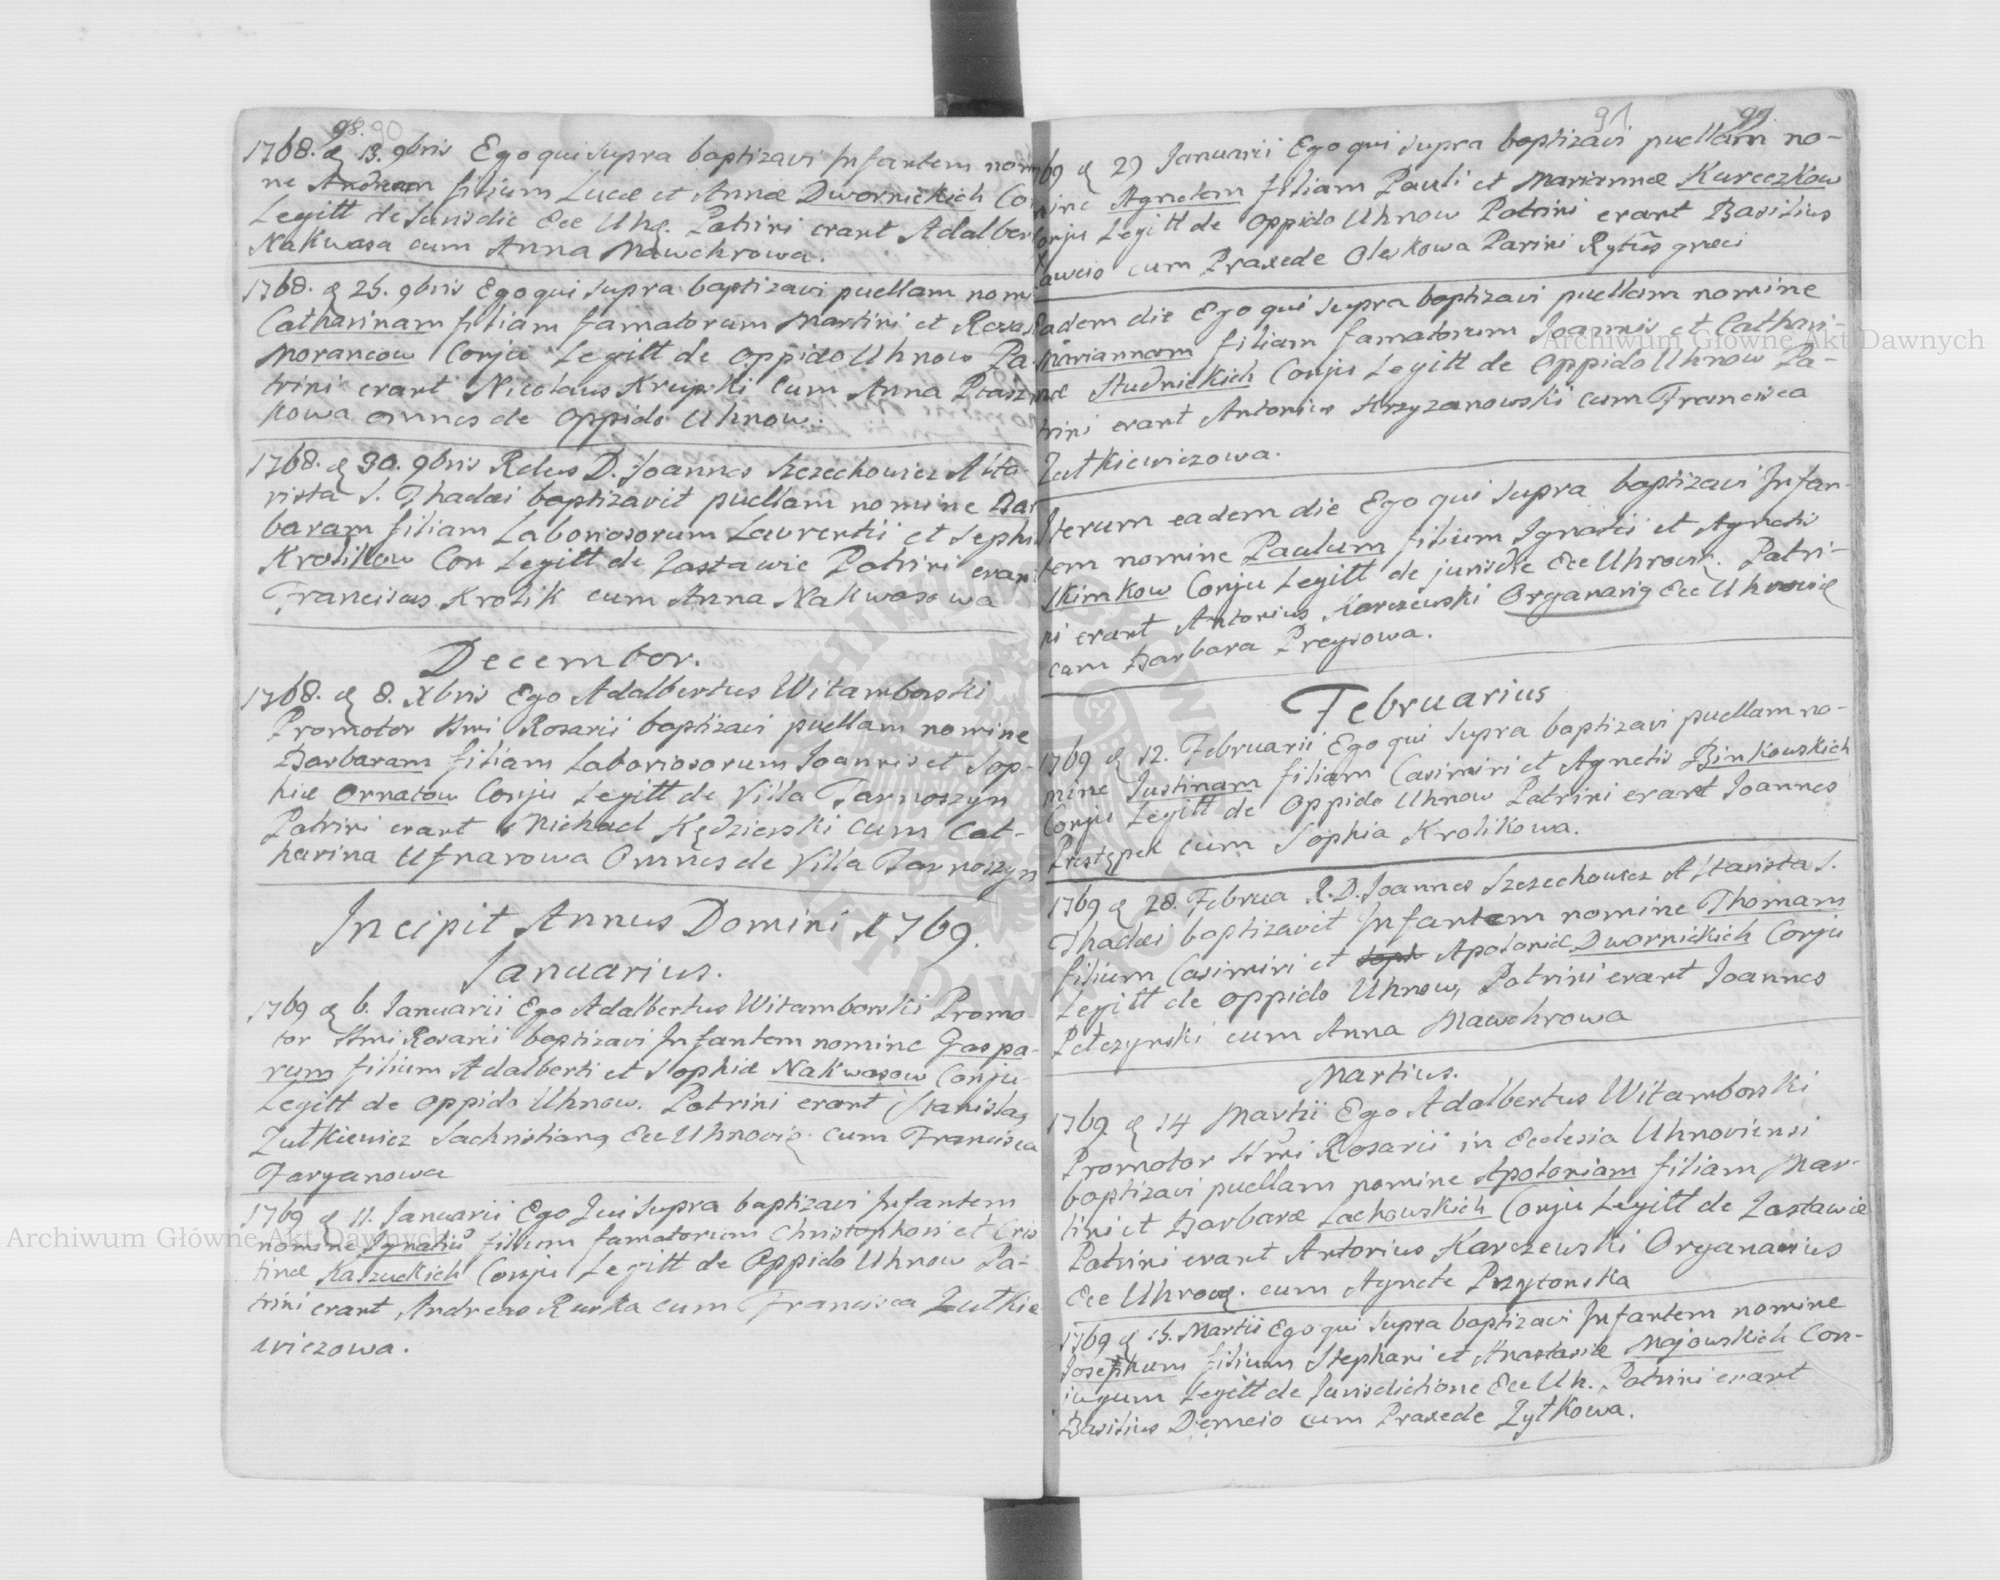 98. 90
1768. d 13. 9bris Ego qui supra baptizavi Infantem nomi
ne Andream filium Lucæ et Annæ Dwornickich Con
Legitt de Jurisdic Ecc Uhn. Patrini erant Adalber
Nakwasa cum Anna Mawchrowa.
1768. d 25. 9bris Ego qui supra baptizavi puellam nomi
Catharinam filiam famatorum Martini et Rosa
Morancow Conju Legitt de Oppido Uhnow Pa-
trini erant Nicolaus Krupski cum Anna Ptaszni
kowa omnes de Oppido Uhnow.
1768. d 30. 9bris Rdus D. Joannes Szczechowicz Alta-
rista S. Thadæi baptizavit puellam nomine Bar
baram filiam Laboriosorum Laurentii et Sophi
Krolikow Con Legitt de Zastawie Patrini erant
Franciscus Krolik cum Anna Nakwasowa
December.
1768. d 8. Xbris Ego Adalbertus Witamborski
Promotor Smi Rosarii baptizavi puellam nomine
Barbaram filiam Laboriosorum Joannis et Sop-
hiæ Ornatow Conju Legitt de Villa Tarnoszyn
Patrini erant Michael Kędzierski cum Cat-
harina Ufnarowa Omnes de Villa Tarnoszyn
Incipit Annus Domini 1769.
Januarius.
1769 d 6. Januarii Ego Adalbertus Witamborski Promo
tor Smi Rosarii baptizavi Infantem nomine Gaspa-
rum filium Adalberti et Sophiæ Nakwasow Conju-
Legitt de Oppido Uhnow. Patrini erant Stanislaus
Zutkiewicz Sachristianus Ecc Uhnovie cum Francisca
Farganowa
1769 d 11. Januarii Ego Qui supra baptizavi Infantem
nomine Ignatiu filium famatorum Christophori et Cris
tinæ Kaszuckich Conju Legitt de Oppido Uhnow Pa-
trini erant Andreas Rurka cum Francisca Zutkie
wiczowa.
91 99.
69 d 29 Januarii Ego qui supra baptizavi puellam no-
mine Agnetem filiam Pauli et Mariannæ Kureczkow
Conju Legitt de Oppido Uhnow Patrini erant Basilius
cum Praxede Oleskowa Parini Rytus græci
Eadem die Ego qui supra baptizavi puellam nomine
Mariannam filiam famatorum Joannis et Cathari-
næ Studnickich Conju Legitt de Oppido Uhnow Pa-
trini erant Antonius Krzyzanowski cum Francisca
Zutkiewiczowa.
Iterum eadem die Ego qui supra baptizavi Infan-
tem nomine Paulum filium Ignatii et Agnetis
Skimkow Conju Legitt de jurisdic Ecc Uhnow. Patri-
ni erant Antonius Karczewski Organariq Ecc Uhnovie
cum Barbara Preysowa.
Februarius
1769 d 12. Februarii Ego qui supra baptizavi puellam no-
mine Justinam filiam Casimiri et Agnetis Binkowskich
Conju Legitt de Oppido Uhnow Patrini erant Joannes
Przstępek cum Sophia Krolikowa.
1769 d 28. Februa R. D. Joannes Szczechowicz Altarista S.
Thadæi baptizavit Infantem nomine Thomam
filium Casimiri et Apoloniæ Dwornickich Conju
Legitt de Oppido Uhnow, Patrini erant Joannes
Petczynski cum Anna Mawchrowa
Martius.
1769 d 14 Martii Ego Adalbertus Witamborski
Promotor Smi Rosarii in Ecclesia Uhnoviensi
baptizavi puellam nomine Apoloniam filiam Mar-
tini et Barbaræ Lachowskich Conju Legitt de Zastawie
Patrini erant Antonius Karczewski Organarius
Ecc Uhnow. cum Agnete Przytonska
1769 d 15. Martii Ego qui supra baptizavi Infantem nomine
Josephum filium Stephani et Anastasiæ Majowskich Con-
jugum Legitt de Jurisdictione Ecc Uh. Patrini erant
Basilius Demcio cum Praxede Zytkowa.
Archiwum Główne Akt Dawnych
Archiwum Główne Akt Dawnych